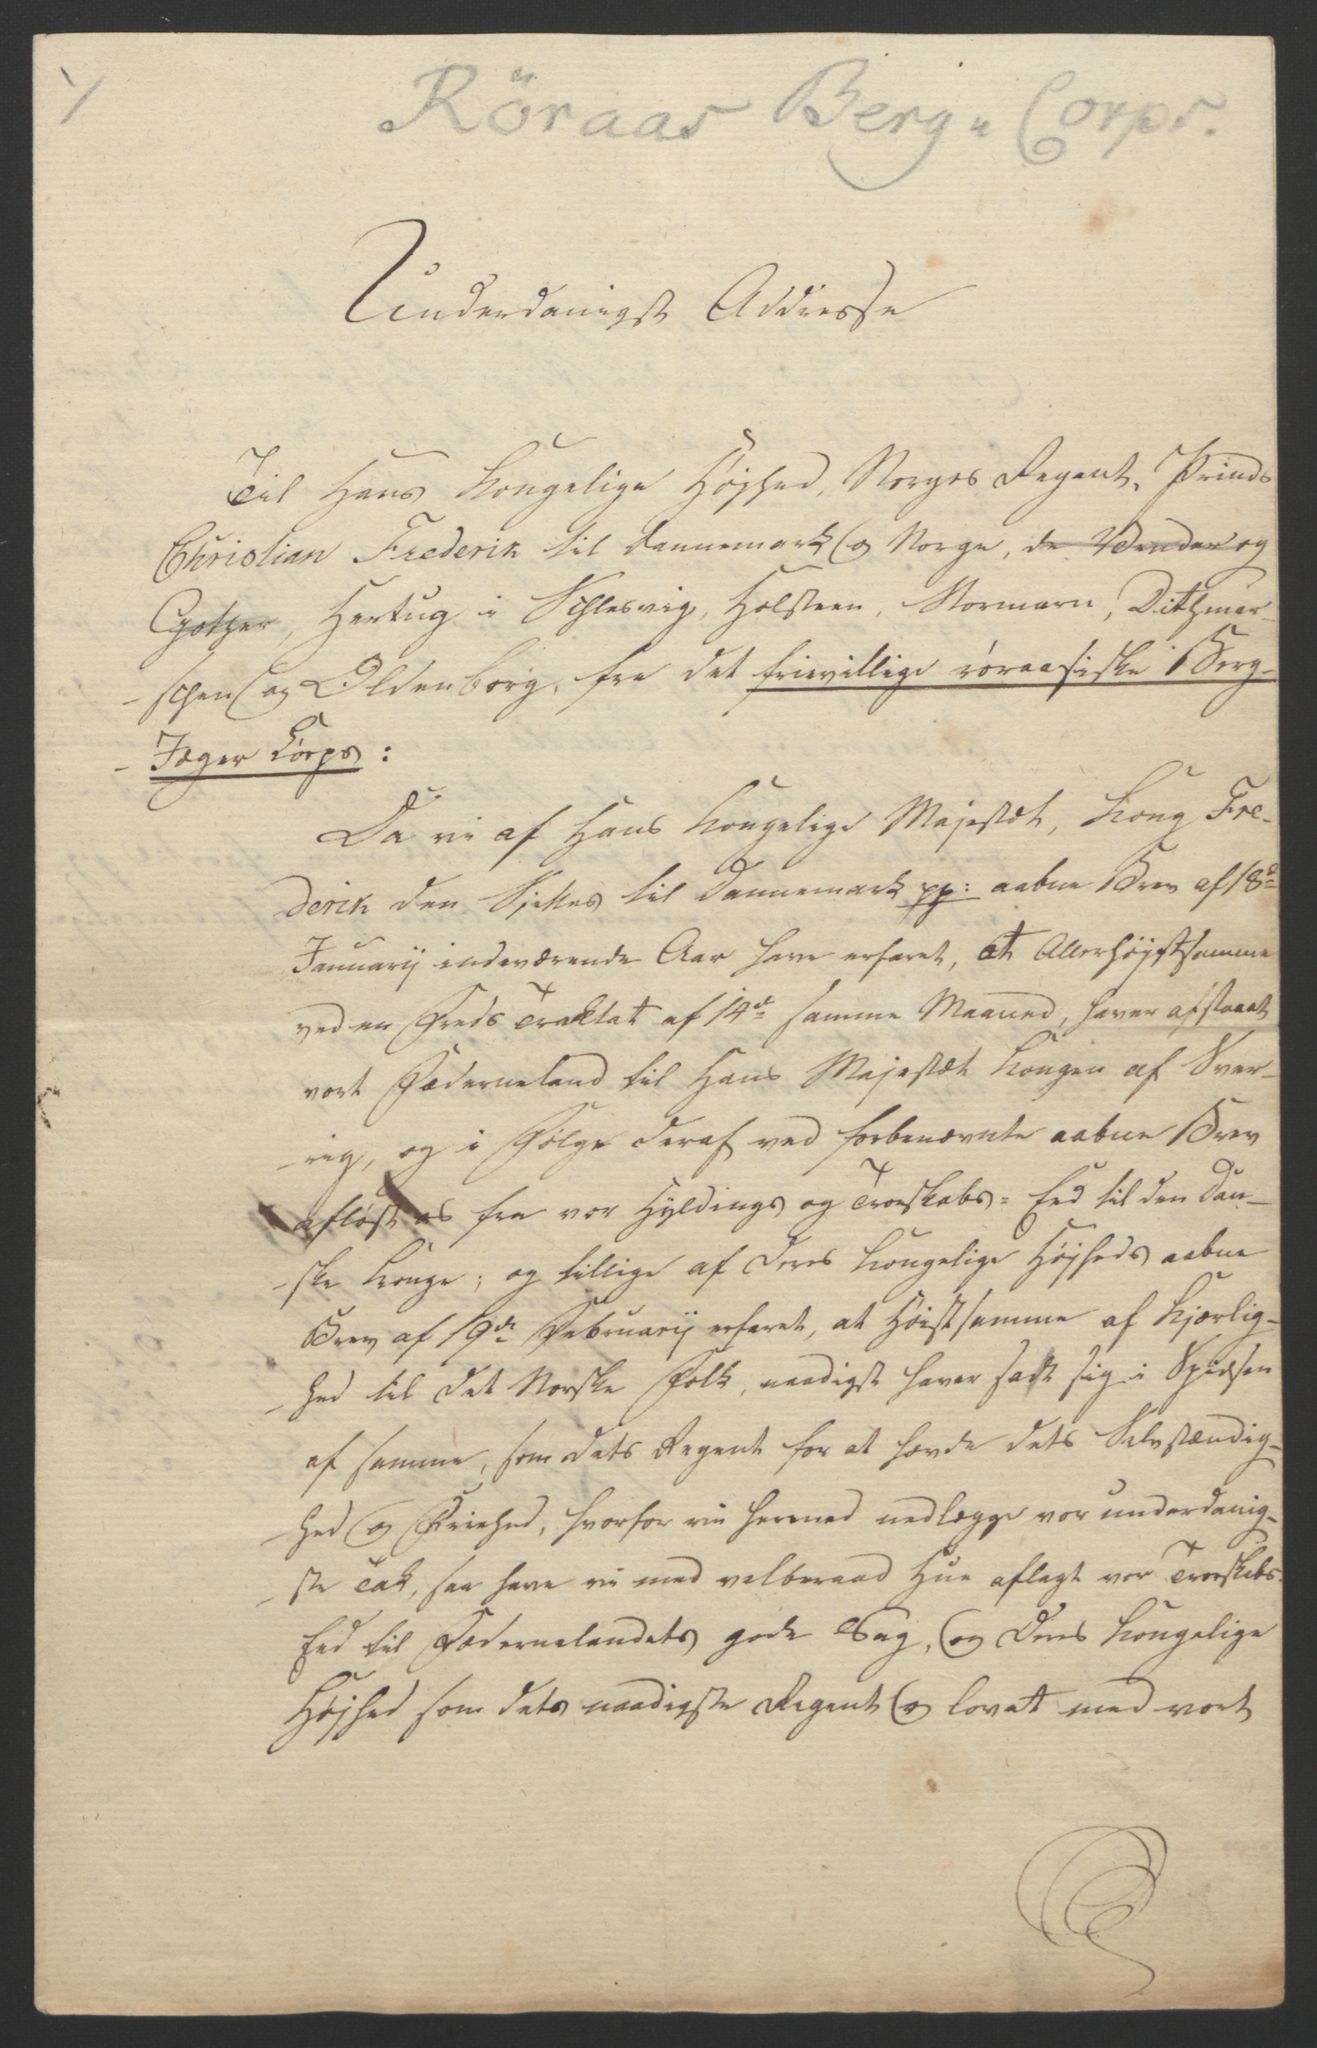 Röraas Berg- Corps.
Underdanigst Addresse
Til Hans Kongelige Højhed, Norges Regent, Prinds
Christian Frederik til Dannemark og Norge, de Vender og
Gother, Hertug i Schlesvig, Holsteen, Stormarn, Dithmar-
-schen og Oldenborg, fra det frievillige röraasiske Berg-
-Jæger Corps:
Da vi af Hans Kongelige Majestæt, Kong Fre-
derik den Sjettes til Dannemark pp: aabne Brev af 18de
Januarij indeværende Aar have erfaret, at Allerhøjstsamme
ved en Freds Traktat af 14de samme Maaned, haver afstaaet
vort Fæderneland til Hans Majestæt Kongen af Sver-
-rig, og i Følge deraf ved forbenævnte aabne Brev
afløst os fra vor Hyldings og Troeskabs-Eed til den Dan-
-ske Konge; og tillige af Deres Kongelige Højheds aabne
Brev af 19de Februarij erfaret, at Høistsamme af Kjærlig-
-hed til det Norske Folk, naadigst haver sadt sig i Spidsen
af samme, som dets Regent for at hævde dets Selvstændig-
-hed og Friehed, hvorfor vi hermed nedlægge vor underdanig-
-ste Tak, saa have vi med velberaad Hue aflagt vor Troeskabs-
Eed til Fædernelandets gode Sag, og Deres Kongelige
Højhed som dets naadigste Regent og lovet med vort